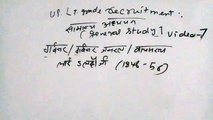 UP LT grade Recruitment :-
सामान्य अध्ययन
(general study) video-7
गवर्नर / गवर्नर जनरल / वायसराय
लार्ड डलहौजी (1848-56)